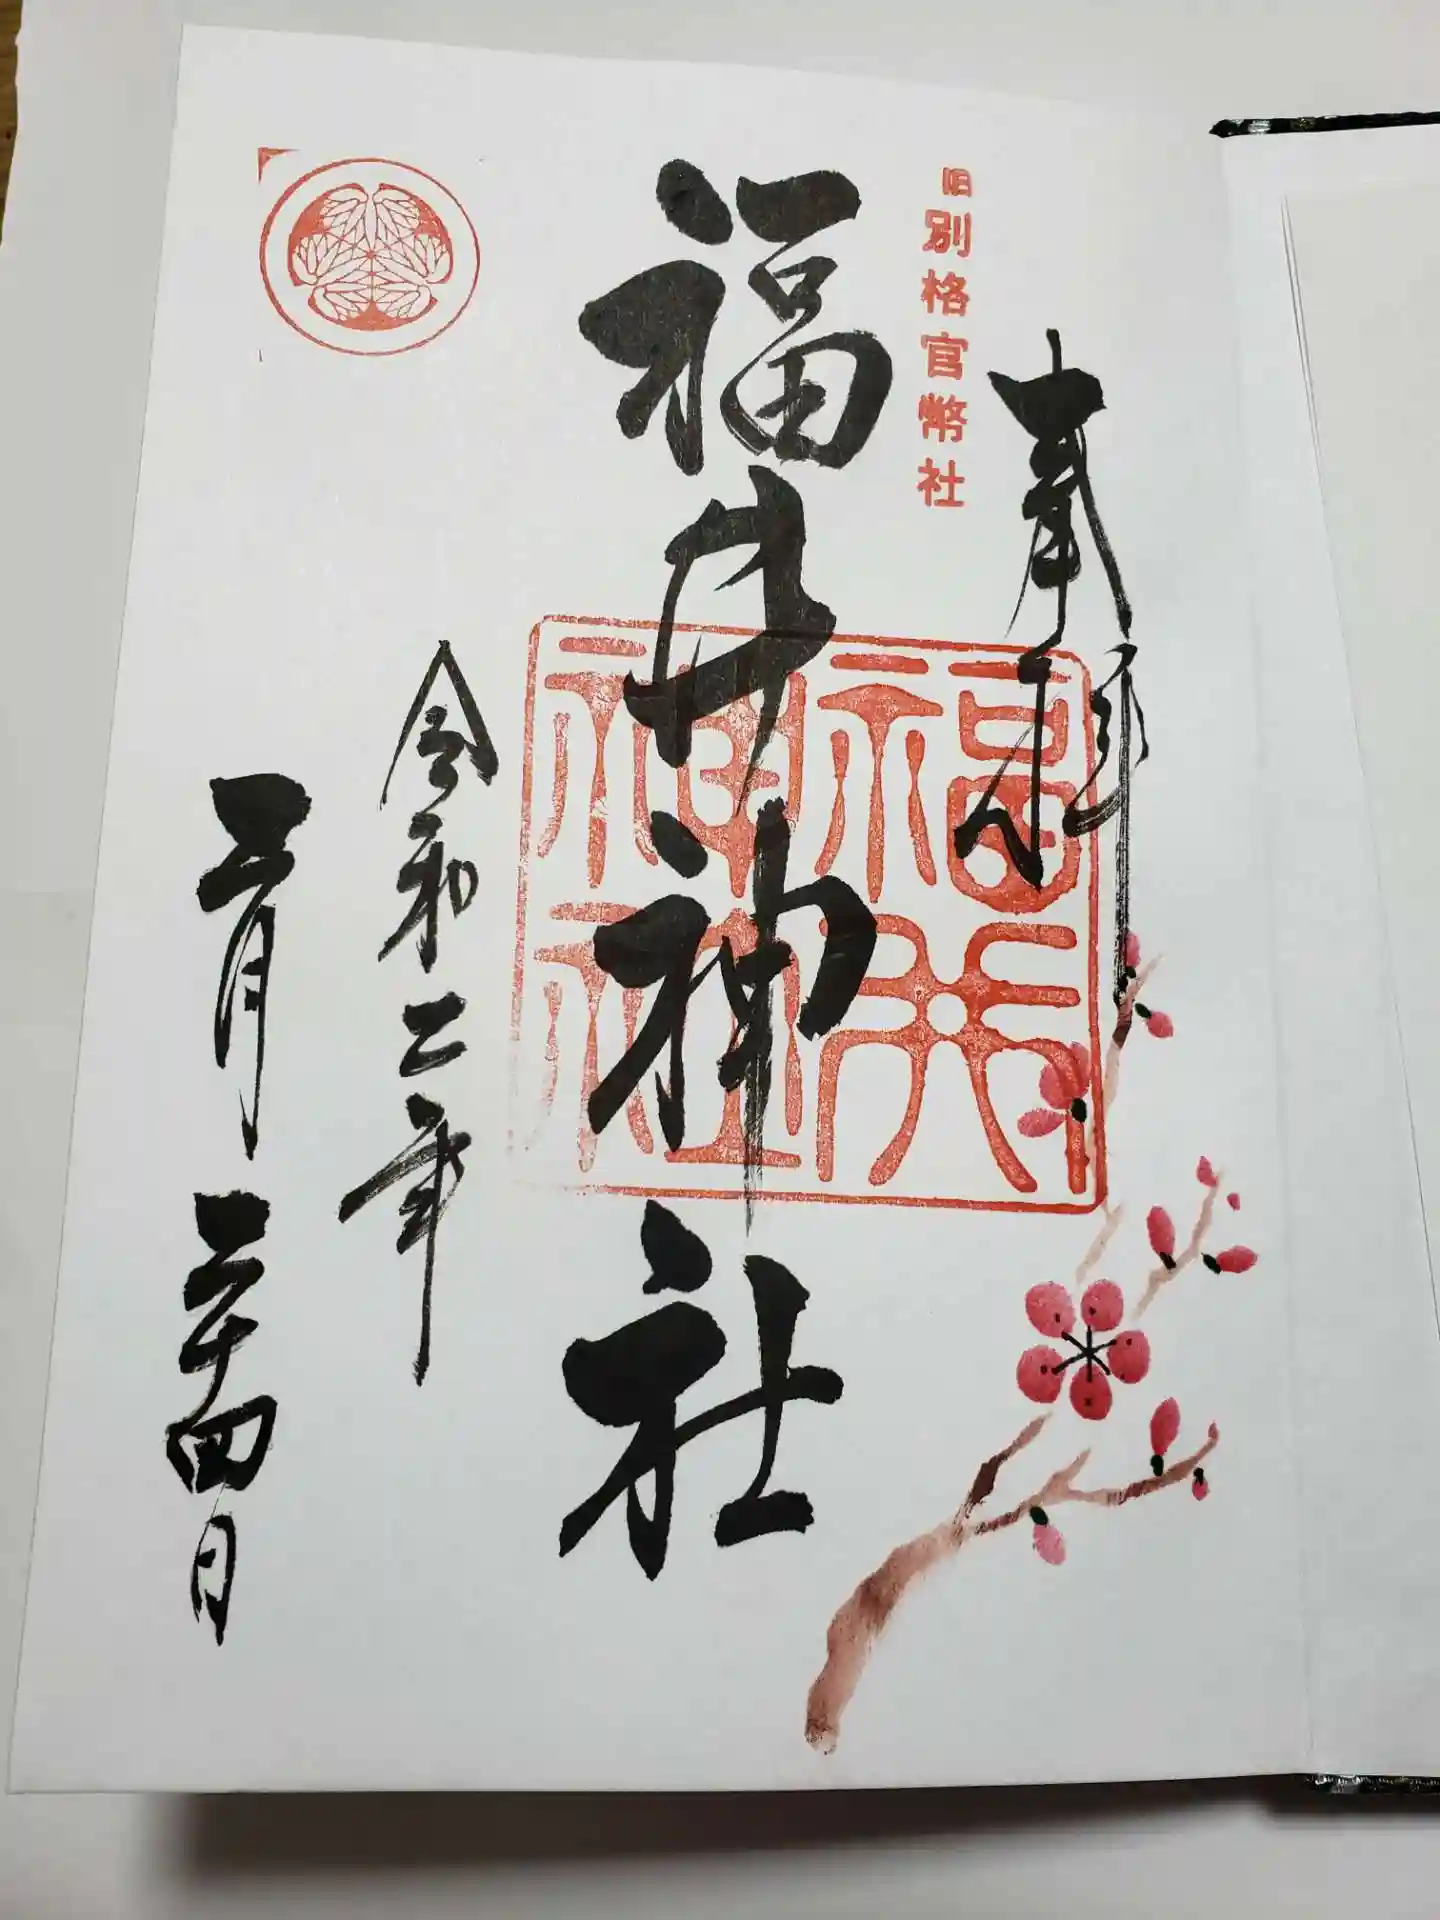 奉拝
旧別格官幣社
福井神社
福井神社
令和二年
二月二十四日